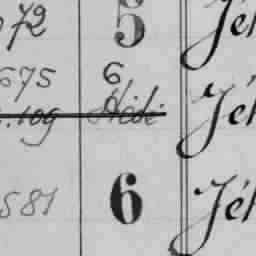 72 5 Jé
675 6
.109 Hédi Jé
581 6 Jé